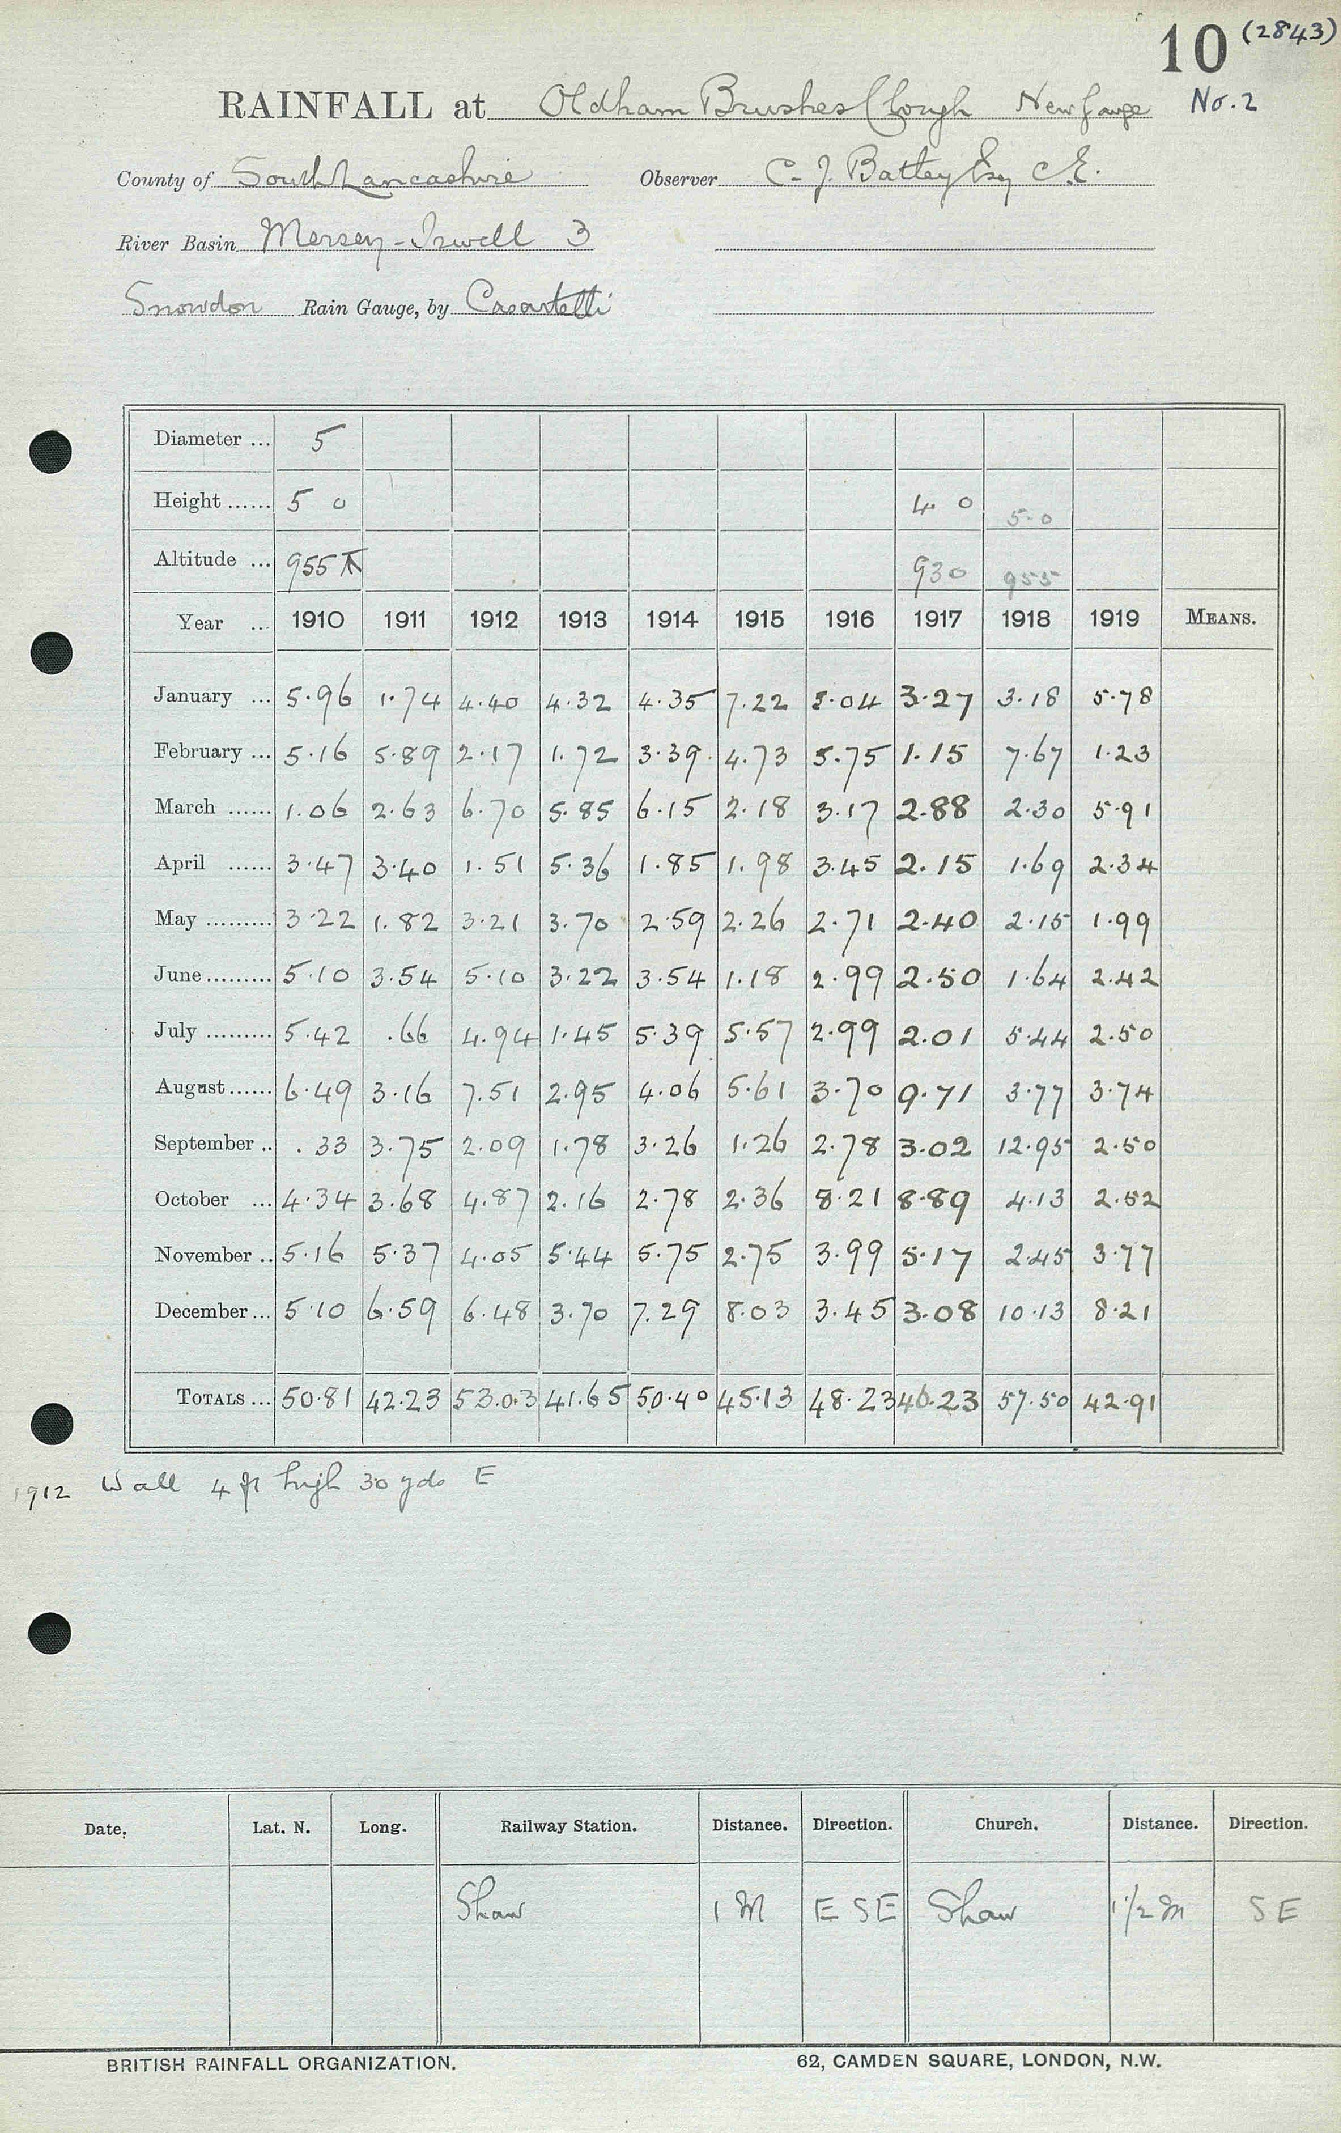 10 (2843)
RAINFALL at Oldham Brushes Clough New Gauge No. 2
County of South Lancashire Observer C. J. Batley Esq C.E.
River Basin Mersey - Irwell 3
Snowdon Rain Gauge, by Casartelli
Diameter ... 5
Height ...... 5 0 4 0 5-0
Altitude ... 955 T 930 955
Year ... 1910 1911 1912 1913 1914 1915 1916 1917 1918 1919 MEANS.
January ... 5.96 1.74 4.40 4.32 4.35 7.22 5.04 3.27 3.18 5.78
February ... 5.16 5.89 2.17 1.72 3.39 4.73 5.75 1.15 7.67 1.23
March ...... 1.06 2.63 6.70 5.85 6.15 2.18 3.17 2.88 2.30 5.91
April ...... 3.47 3.40 1.51 5.36 1.85 1.98 3.45 2.15 1.69 2.34
May ......... 3.22 1.82 3.21 3.70 2.59 2.26 2.71 2.40 2.15 1.99
June ......... 5.10 3.54 5.10 3.22 3.54 1.18 2.99 2.50 1.64 2.42
July ......... 5.42 .66 4.94 1.45 5.39 5.57 2.99 2.01 5.44 2.50
August ...... 6.49 3.16 7.51 2.95 4.06 5.61 3.70 9.71 3.77 3.74
September .. .33 3.75 2.09 1.78 3.26 1.26 2.78 3.02 12.95 2.50
October ... 4.34 3.68 4.87 2.16 2.78 2.36 8.21 8.89 4.13 2.52
November .. 5.16 5.37 4.05 5.44 5.75 2.75 3.99 5.17 2.45 3.77
December ... 5.10 6.59 6.48 3.70 7.29 8.03 3.45 3.08 10.13 8.21
TOTALS ... 50.81 42.23 53.03 41.65 50.40 45.13 48.23 46.23 57.50 42.91
1912 Wall 4 ft high 30 yds E
Date. Lat. N. Long. Railway Station. Distance. Direction. Church. Distance. Direction.
Shaw 1 M E SE Shaw 1 1/2 M SE
BRITISH RAINFALL ORGANIZATION. 62, CAMDEN SQUARE, LONDON, N.W.